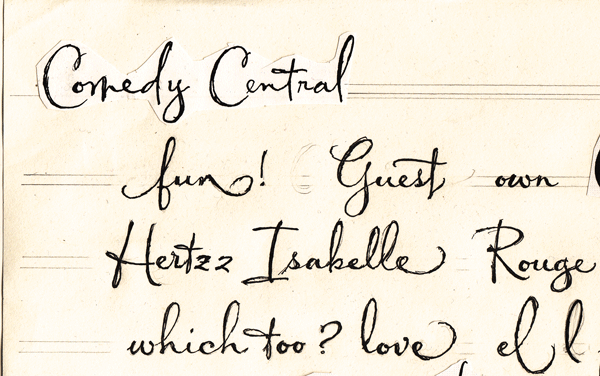 Comedy Central
fun! Guest own
Hertzz Isabelle Rouge
which too? love el l